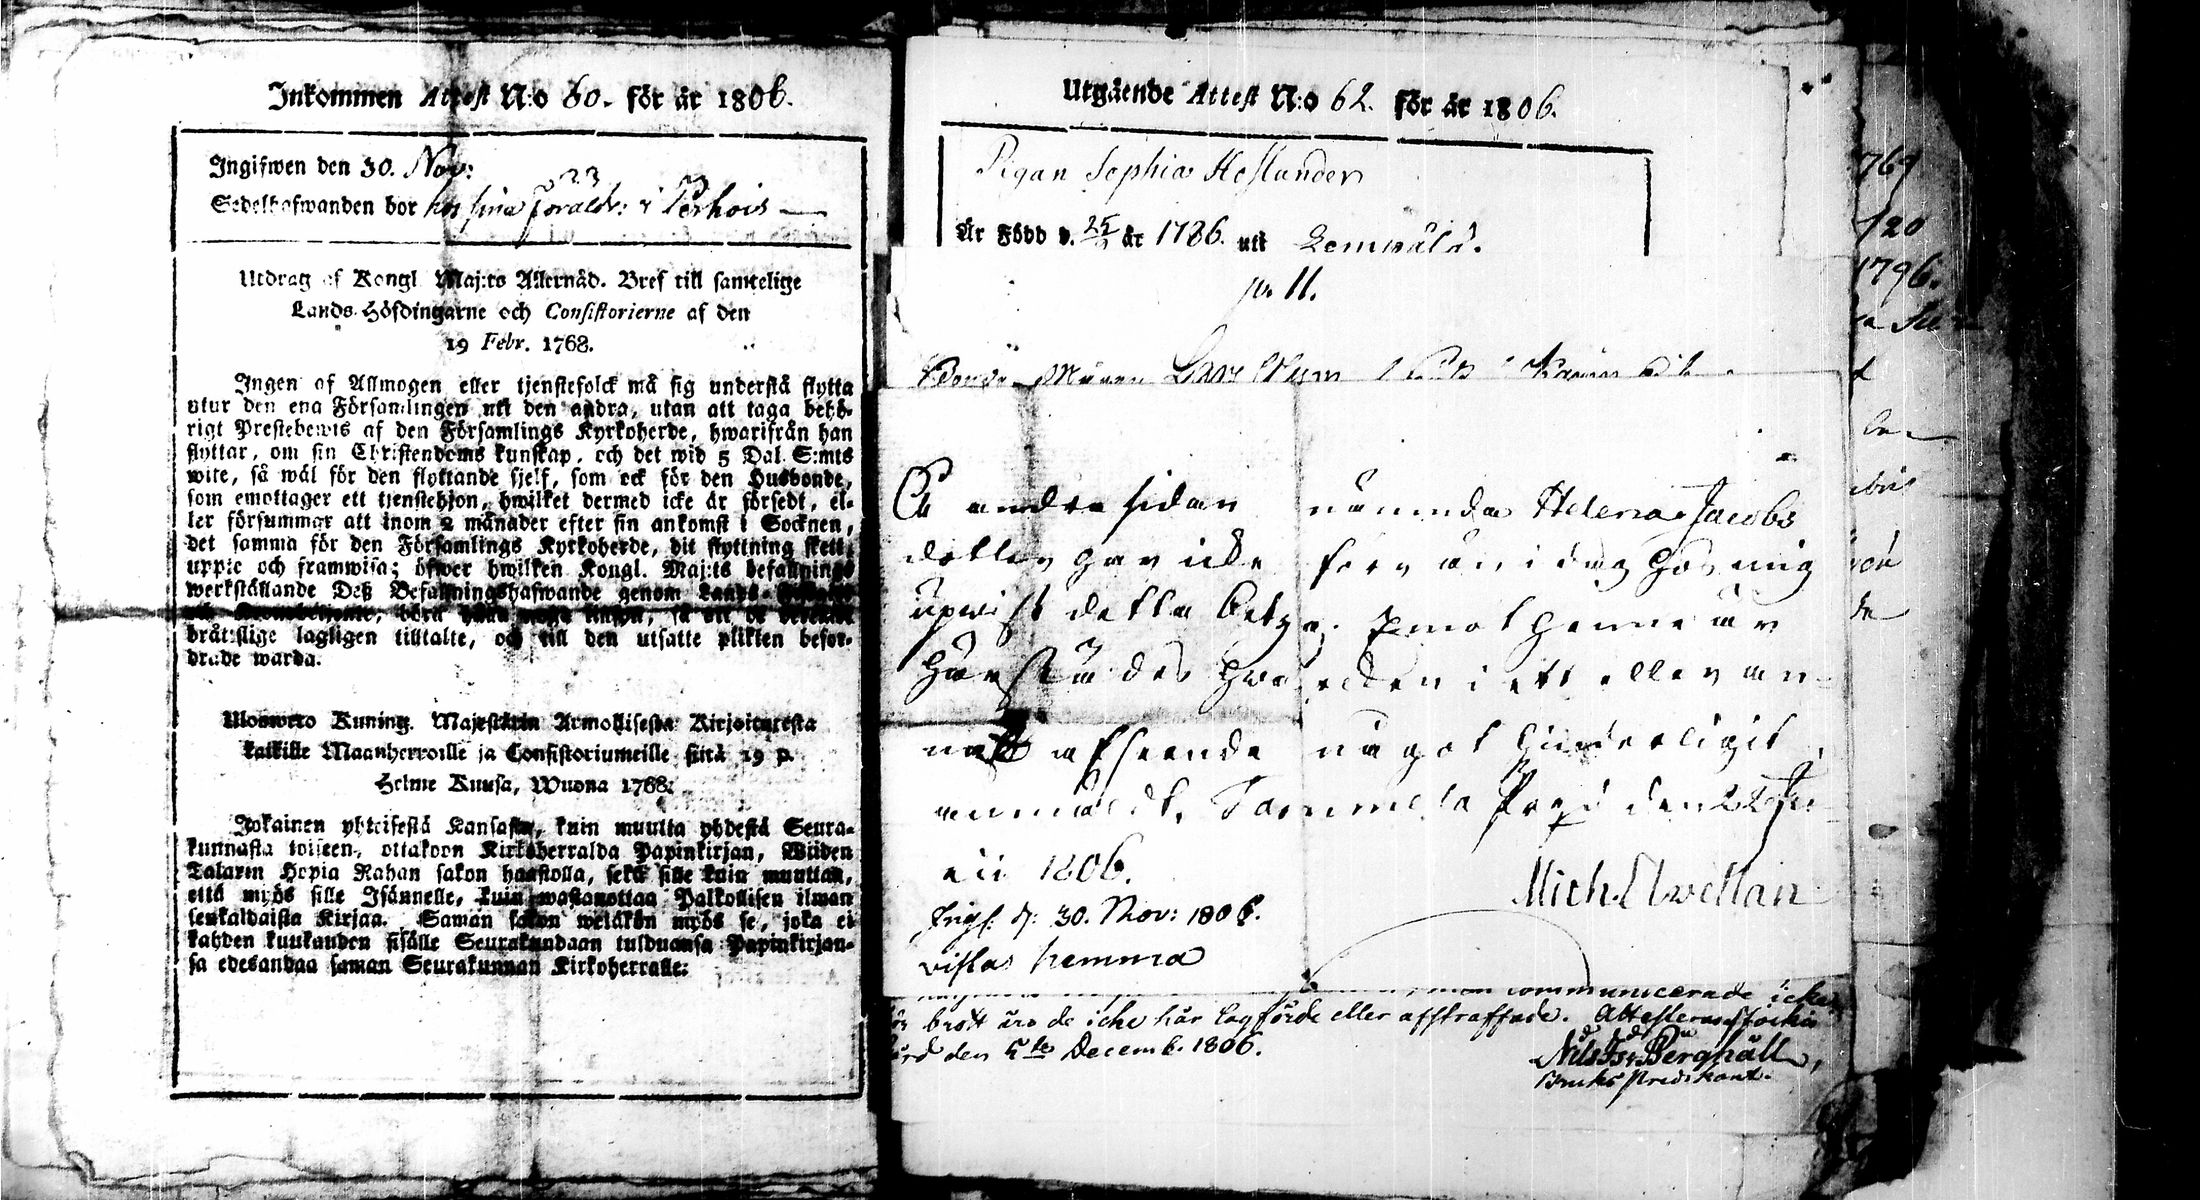 Inkommen Attest N:o 60. för år 1806.
Ingifwen den 30. Nov:
Sedelhafwanden bor hos sina föräldr: i Porhois
Utdrag af Kongl. Maj:ts Allernåd. Bref till samtelige
Lands-Höfdingarne och Consistorierne af den
19 Febr. 1768.
Ingen af Allmogen eller tjenstefolck må sig understå flytta
utur den ena Församlingen uti den andra, utan att taga behö-
rigt Prestebewis af den Församlings Kyrkoherde, hwarifrån han
flyttar, om sin Christendoms kunskap, och det wid 5 Dal. S:mts
wite, så wäl för den flyttande sjelf, som ock för den Husbonde,
som emottager ett tjenstehjon, hwilket dermed icke är försedt, el-
ler försummar att inom 2 månader efter sin ankomst i Socknen,
det samma för den Församlings Kyrkoherde, dit flyttning skett,
uppte och framwisa; öfwer hwilken Kongl. Maj:ts befallnings
werkställande Deß Befallningshafwande genom Lands-
böra så att de
bråttslige lagligen tilltalte, och till den utsatte plikten befor-
drade warda.
Ulosweto Kuning. Majestätin Armollisesta Kirjoituxesta
kaikille Maanherroille ja Consistoriumeille siitä 19 p.
Helme Kuusa, Wuona 1768.
Jokainen yhteisestä Kansasta, kuin muutta yhdestä Seura-
kunnasta toiseen, ottakoon Kirkoherralda Papinkirjan, Wiiden
Talarin Hopia Rahan sakon haastolla, sekä sille kuin muuttaa,
että myös sille Isännelle, kuin wastanottaa Palkollisen ilman
senkaldaista Kirjaa. Saman sakon wetäkön myös se, joka ei
kahden kuukauden sisälle Seurakundaan tulduansa Papinkirjan-
sa edesandaa saman Seurakunnan Kirkoherralle:
Utgående Attest N:o 62. för år 1806.
Pigan Sophia Heslunder
Är Född d. 25 år 1786. uti Lemwälä.
11.
Lars
På andra sidan nämnda Helena Jacobs
dotter har icke förr än i dag hos mig
upwist detta betyg. Emot henne är
härstädes hwarcken i ett eller an-
nat afseende något hinderligit
anmäldt. Tammela Pred den 22 Ju-
nii 1806.
Mich. Avellan
Ingf. d: 30. Nov: 1806.
vistas hemma
communicerade icke
för brott äro de icke här lagförde eller afstraffade. Attesteras
den 5te Decemb. 1806.
Nils Is: Berghäll,
Bruks Predikant.
769
120
1796.